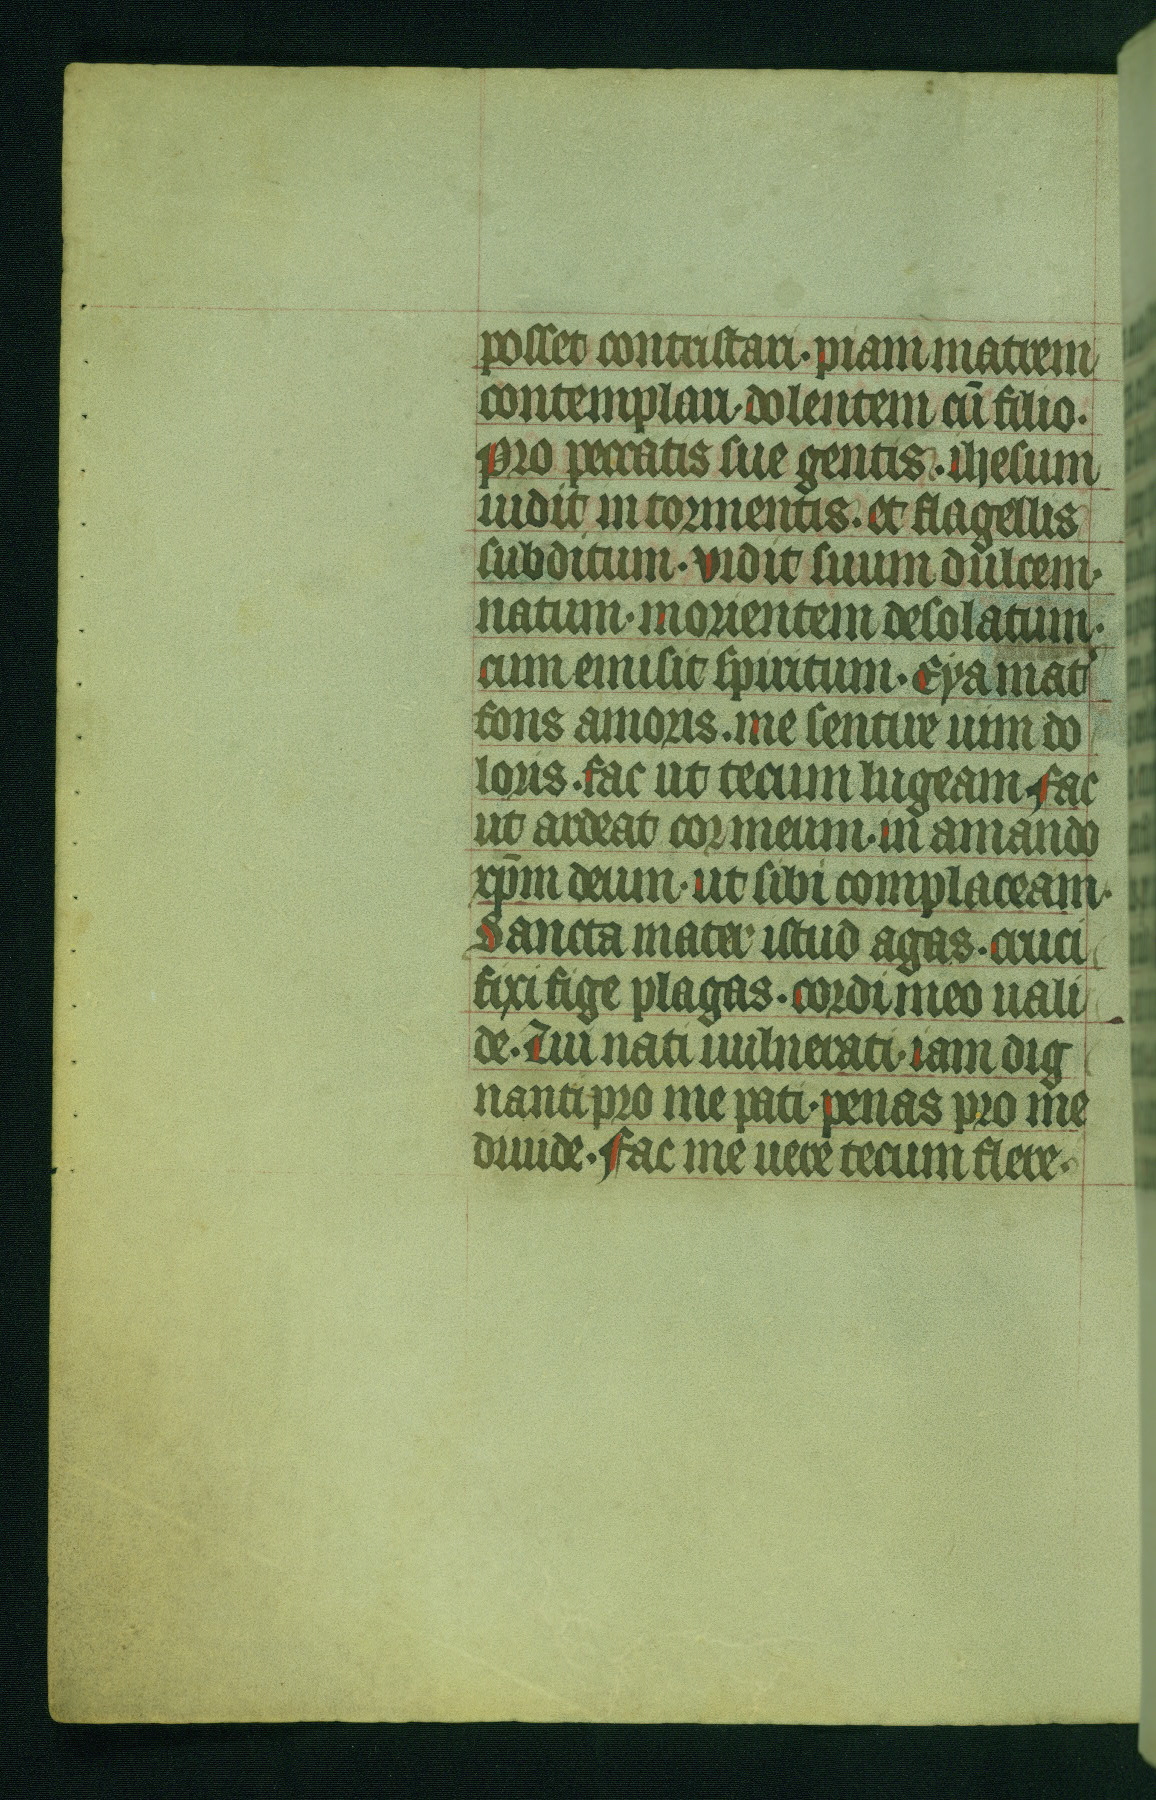 posset contristari · piam matrem
contemplari · dolentem cū filio ·
Pro peccatis sue gentis · ihesum
uidit in tormentis · et flagellis
subditum · Vidit suum dulcem ·
natum · morientem desolatum ·
cum emisit spiritum · Eya mat᷑
fons amoris · me sentire uim do
loris · fac ut tecum lugeam · Fac
ut ardeat cor meum · in amando
xp̄m deum · ut sibi complaceam ·
Sancta mater istud agas · cruci
fixi fige plagas · cordi meo uali
de · Tui nati uulnerati · iam dig
nanti pro me pati · penas pro me
diuide · Fac me uere tecum flere ·